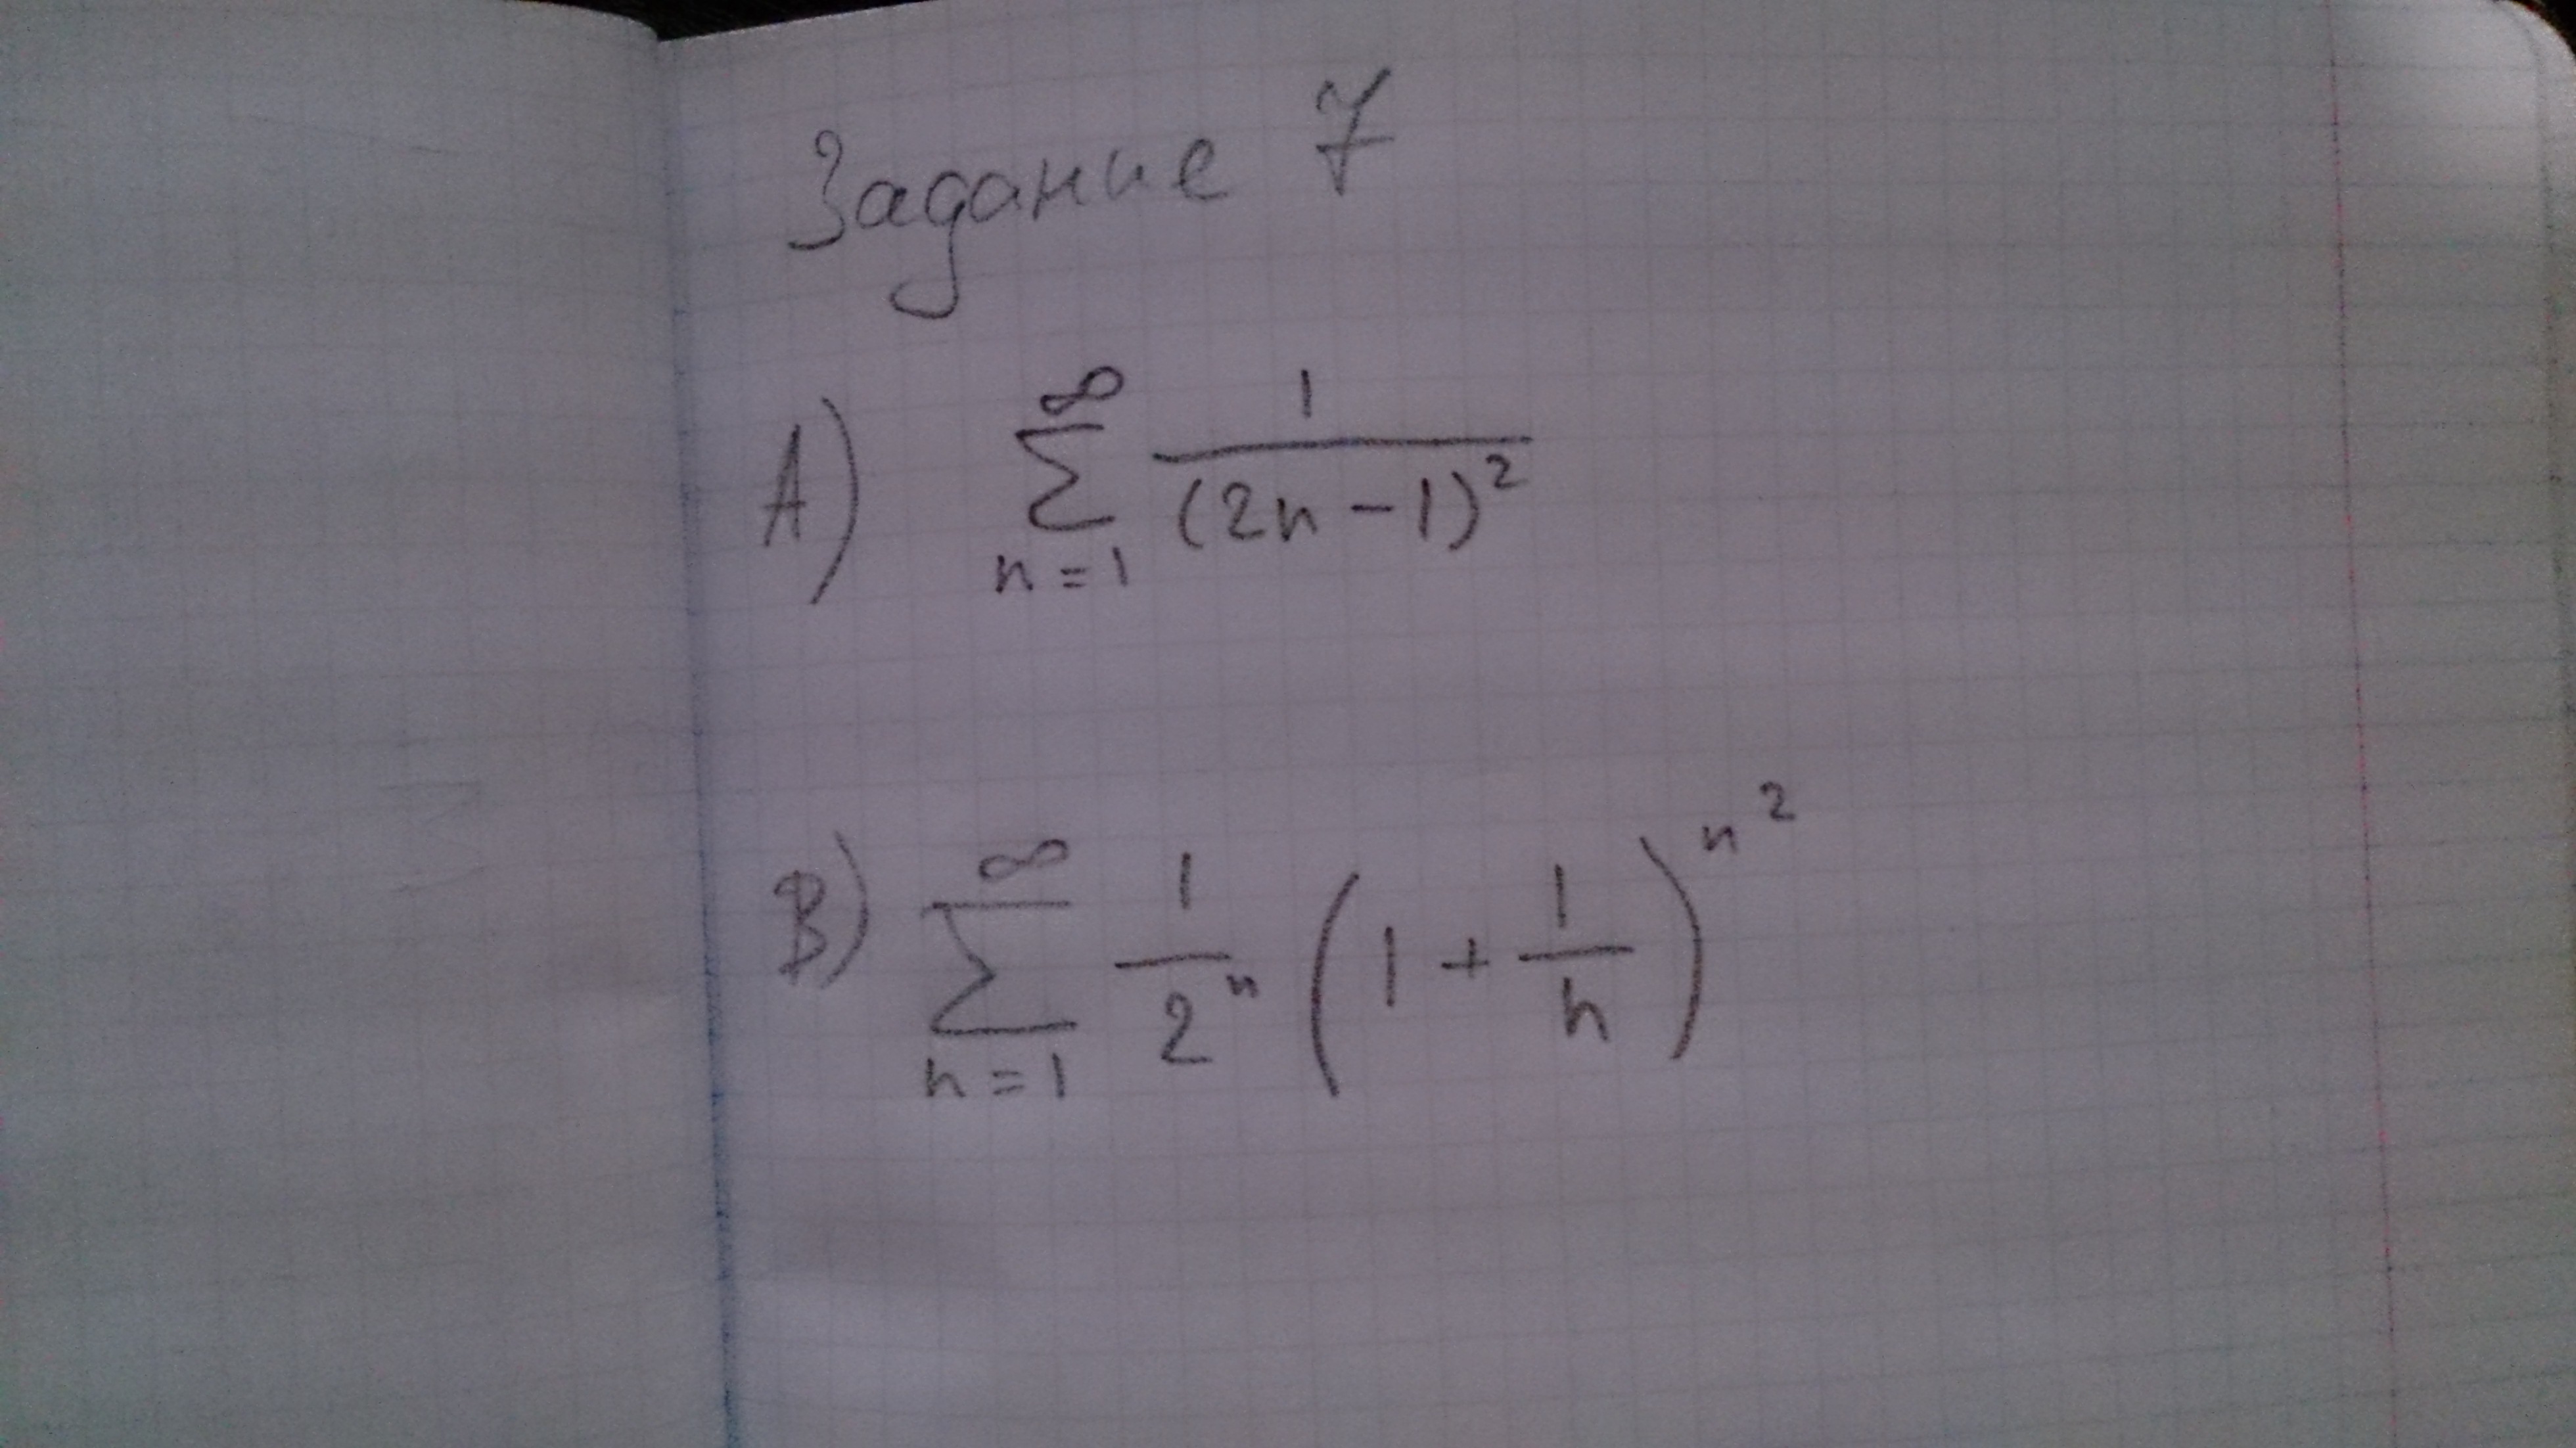 Задание 7
A) $\sum_{n=1}^{\infty} \frac{1}{(2n-1)^2}$
B) $\sum_{n=1}^{\infty} \frac{1}{2^n} \left(1+\frac{1}{n}\right)^{n^2}$